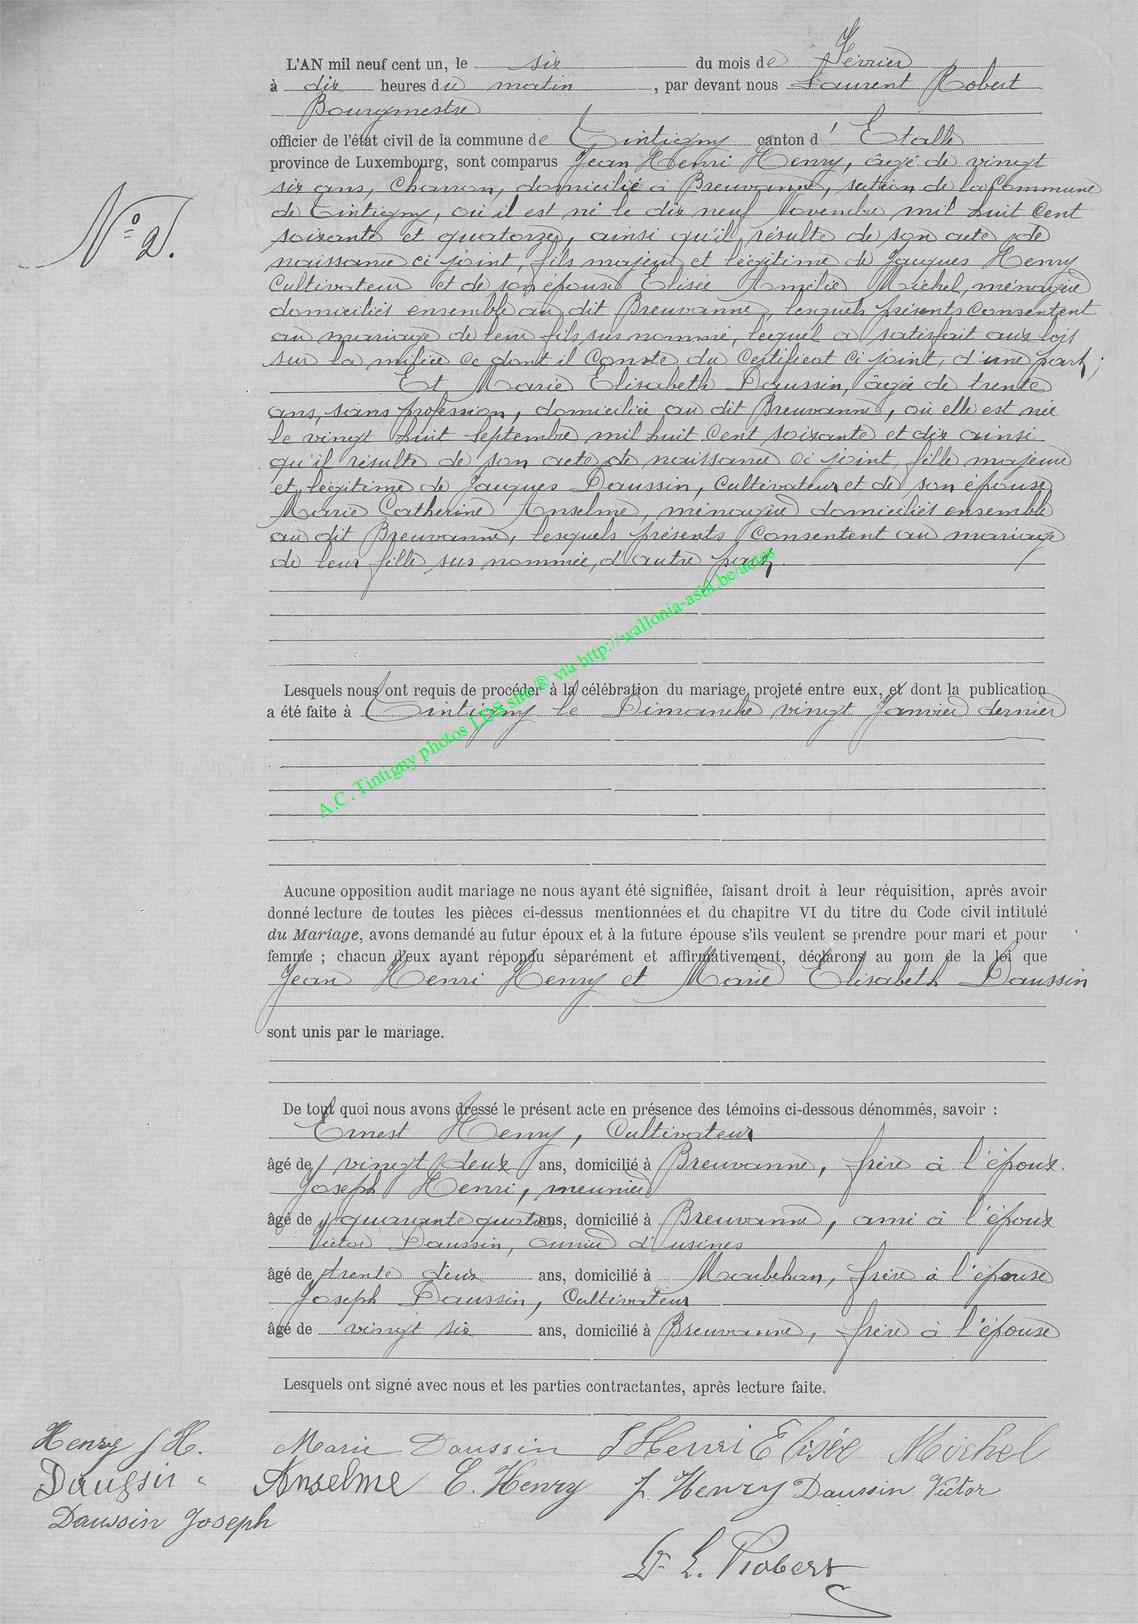 L'AN mil neuf cent un, le six du mois de Février
à dix heures du matin, par devant nous Laurent Robert
Bourgmestre
officier de l'état civil de la commune de Tintigny canton d'Etalle
province de Luxembourg, sont comparus Jean Henri Henry, âgé de vingt
six ans, Charron, domicilié à Breuvanne, section de la Commune
N° 2.
de Tintigny, où il est né le dix neuf Novembre mil huit Cent
soixante et quatorze, ainsi qu'il résulte de son acte de
naissance ci joint, fils majeur et légitime de Jacques Henry
Cultivateur et de son épouse Elisée Amélie Michel, ménagère
domiciliés ensemble au dit Breuvanne, lesquels présents Consentent
au mariage de leur fils sus nommé, lequel a satisfait aux lois
sur la milice ce dont il Conste du Certificat Ci joint, d'une part;
Et Marie Elisabeth Daussin, âgée de trente
ans, sans profession, domiciliée au dit Breuvanne, où elle est née
le vingt huit Septembre mil huit Cent soixante et dix ainsi
qu'il résulte de son acte de naissance Ci joint, fille majeure
et légitime de Jacques Daussin, Cultivateur et de son épouse
Marie Catherine Anselme, ménagère domiciliés ensemble
au dit Breuvanne, lesquels présents Consentent au mariage
de leur fille sus nommée, d'autre part.
A.C. Tintigny photos LDS site ® via http://wallonia-asbl.be/actes
Lesquels nous ont requis de procéder à la célébration du mariage projeté entre eux, et dont la publication
a été faite à Tintigny le Dimanche vingt Janvier dernier
Aucune opposition audit mariage ne nous ayant été signifiée, faisant droit à leur réquisition, après avoir
donné lecture de toutes les pièces ci-dessus mentionnées et du chapitre VI du titre du Code civil intitulé
du Mariage, avons demandé au futur époux et à la future épouse s'ils veulent se prendre pour mari et pour
femme ; chacun d'eux ayant répondu séparément et affirmativement, déclarons au nom de la loi que
Jean Henri Henry et Marie Elisabeth Daussin
sont unis par le mariage.
De tout quoi nous avons dressé le présent acte en présence des témoins ci-dessous dénommés, savoir :
Ernest Henry, Cultivateur
âgé de vingt deux ans, domicilié à Breuvanne, frère à l'époux.
Joseph Henri, meunier
âgé de quarante quatre ans, domicilié à Breuvanne, ami à l'époux
Victor Daussin, ouvrier d'usines
âgé de trente deux ans, domicilié à Moubehan, frère à l'épouse
Joseph Daussin, Cultivateur
âgé de vingt six ans, domicilié à Breuvanne, frère à l'épouse
Lesquels ont signé avec nous et les parties contractantes, après lecture faite.
Henry J H. Marie Daussin J Henri Elisée Michel
Daussin Anselme E. Henry J. Henry Daussin Victor
Daussin Joseph
Dr L. Robert